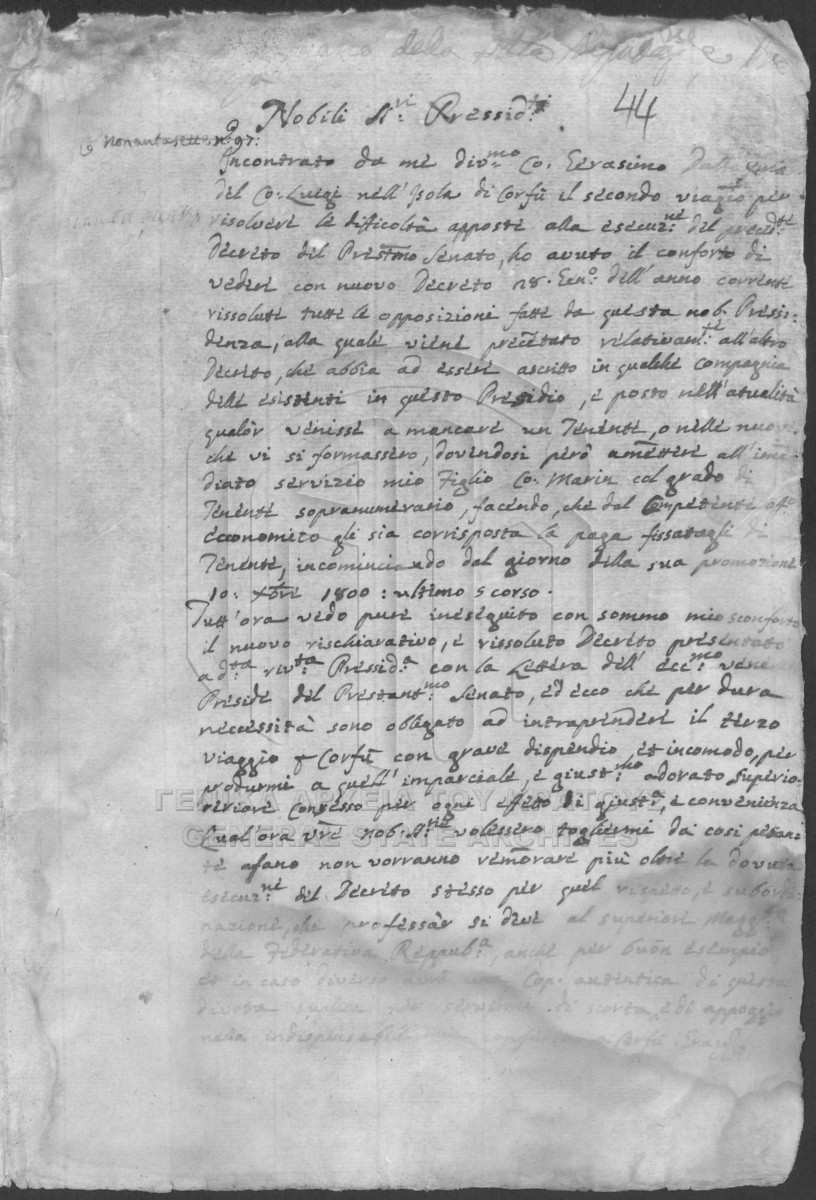 44
Nobili S.ri Pressid.ti
Nonantasette n.o 97:
Incontrato da me div.mo Co. Gerasimo
del Co. Luigi nell'Isola di Corfù il secondo viaggio per
risolvere le difficoltà apposte alla esecuz.ne del preced.te
Decreto del Prestmo Senato, ho avuto il conforto di
vedere con nuovo Decreto 28. Gen.o dell'anno corrente
rissolute tutte le opposizioni fatte da questa nob. Pressi:
denza, alla quale viene precētato relativam.te all'altro
Decreto, che abbia ad essere ascritto in qualche Compagnia
delle esistenti in questo Presidio, e posto nell'atualità
qualōr venisse a mancare un Tenente, o nelle nuove
che vi si formassero, dovendosi però amēttere all'ime
diato servizio mio Figlio Co. Marin col grado di
Tenente sopranumerario, facendo, che dal Competente off.o
economico gli sia corrisposta la paga fissatagli di
Tenente, incominciando dal giorno della sua promozione
10: Xbre 1800: ultimo scorso.
Tutt'ora vedo pure ineseguito con sommo mio sconforto
il nuovo rischiarativo, e rissoluto Decreto presentato
a d.ta riv.ta Pressid.a con la Lettera dell'ecc.mo
Preside del Prestant.mo Senato, ed ecco che per dura
necessità sono obligato ad intraprendere il terzo
viaggio Corfù con grave dispendio, et incomodo, per
produrmi a quell'imparciale, e giust.mo adorato Superio:
reriore Consesso per ogni effetto di giust.a, e convenienza
Qual ora vre nob. S.rie volessero togliermi da così pesan:
te afano non vorranno remorare più oltre la dovuta
esecuz.ne del Decreto stesso per quel rispetto, e subordi:
nazione, che professār si deve al superiore Magg.
della Federativa Reppub.a, anche per buōn esempio
et in caso diverso una Cop. autentica di questa
devota di scorta, e di appoggio
nella Corfù.
ΓΕΝΙΚΑ ΑΡΧΕΙΑ ΤΟΥ ΚΡΑΤΟΥΣ
GENERAL STATE ARCHIVES